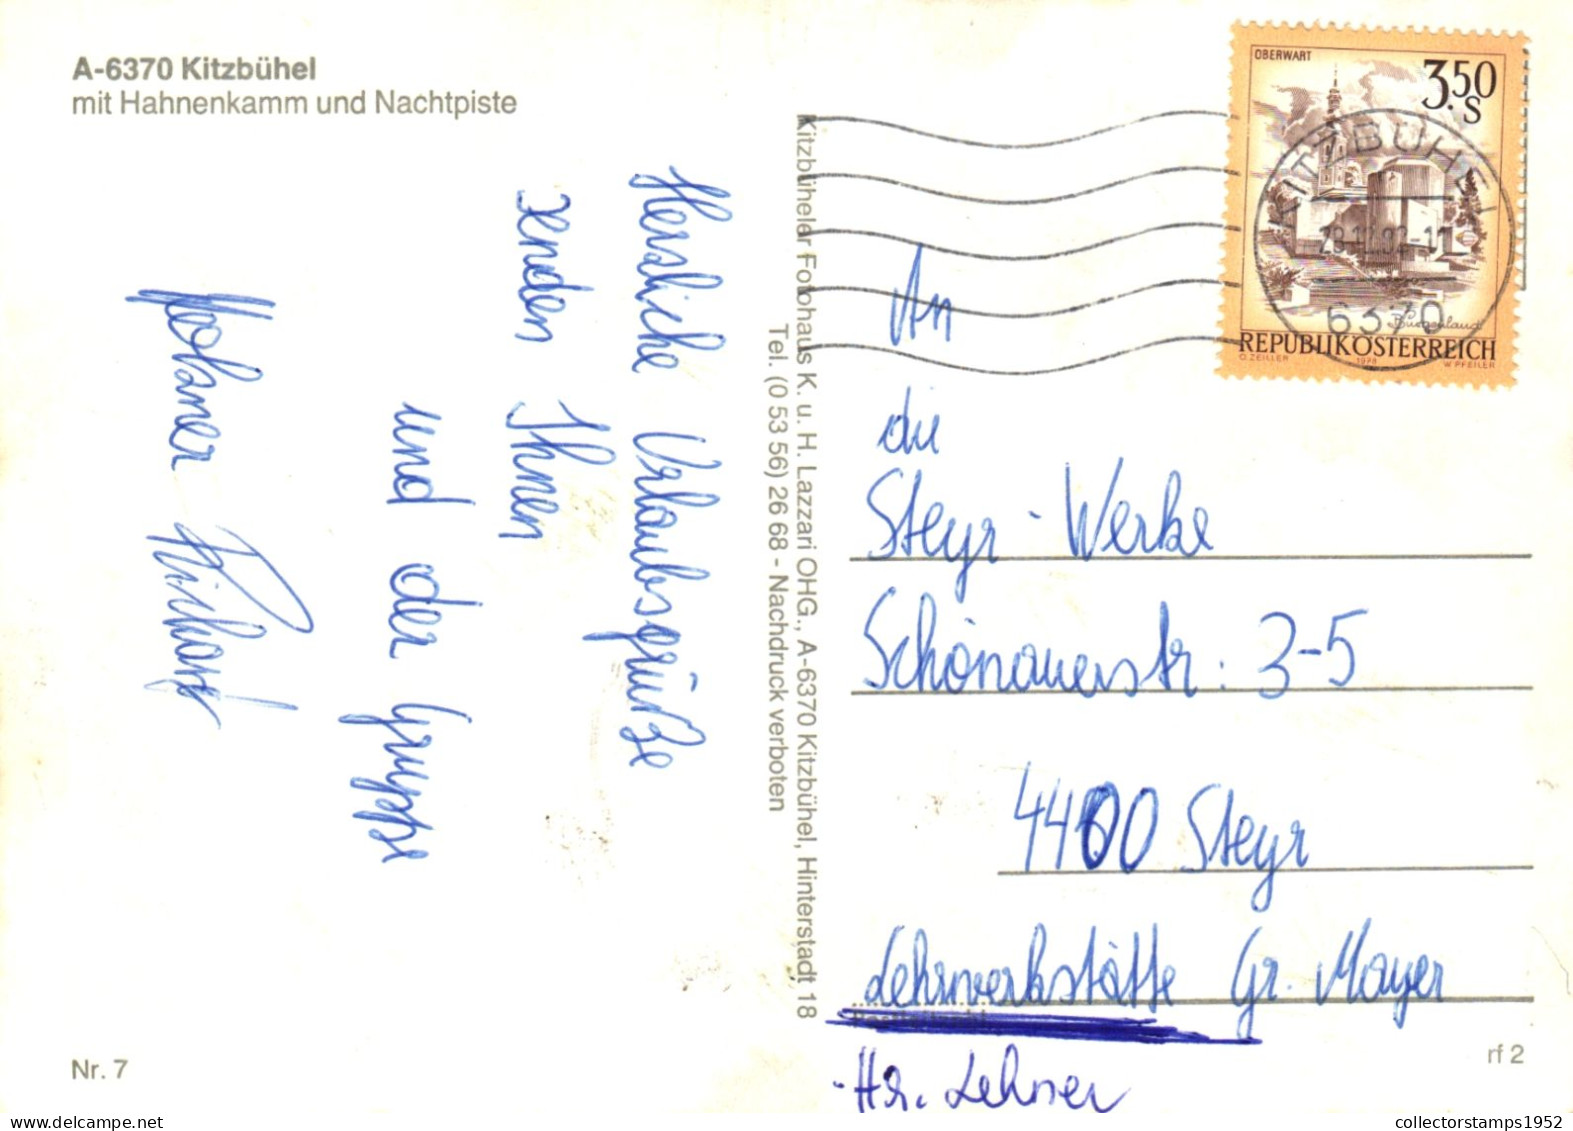 A-6370 Kitzbühel
mit Hahnenkamm und Nachtpiste
Herzliche Urlaubsgrüße
senden Ihnen
und der Gruppe
Nr. 7
Kitzbüheler Fotohaus K. u. H. Lazzari OHG., A-6370 Kitzbühel, Hinterstadt 18
Tel. (0 53 56) 26 68 - Nachdruck verboten
OBERWART
3.50
S
KITZBÜHEL
6370
Burgenland
REPUBLIK ÖSTERREICH
O. ZEILLER 1978 W. PFEILER
An
die
Steyr-Werke
Schönauerstr: 3-5
4400 Steyr
Lehrwerkstätte Gr. Mayer
Hr. Lehner
rf 2
collectorstamps1952